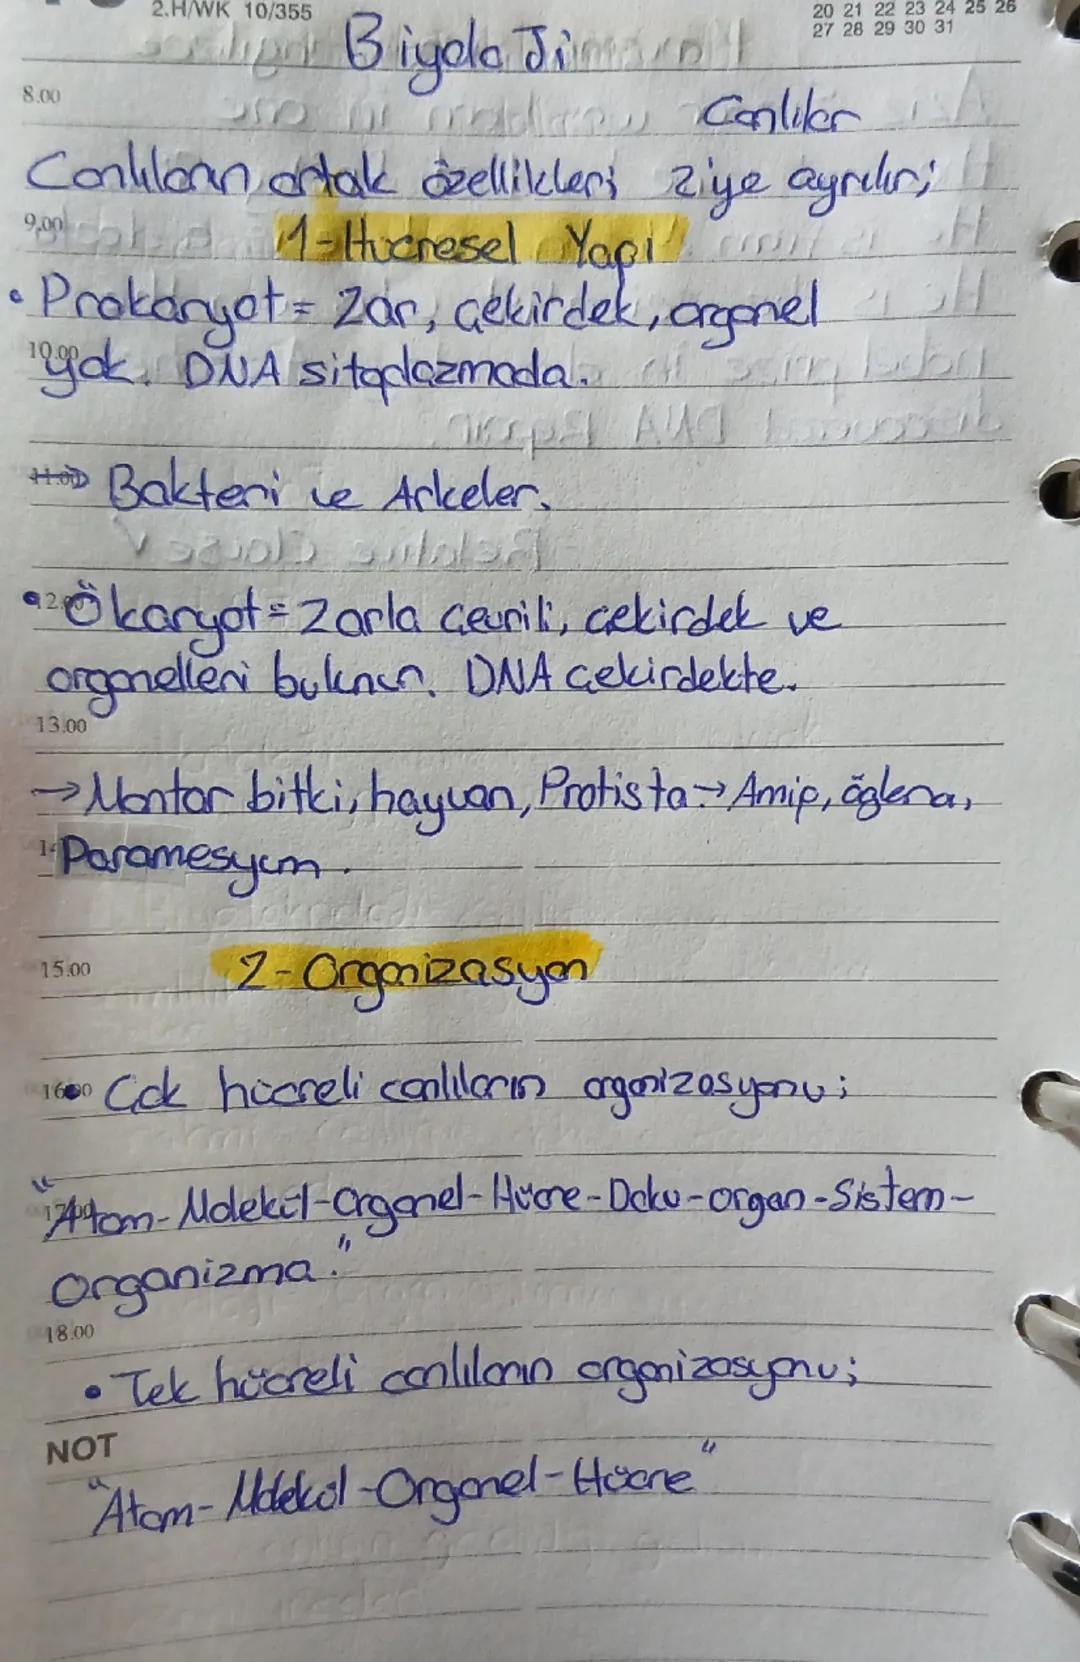 2.H/WK 10/355
20 21 22 23 24 25 26
27 28 29 30 31
Biyoloji
8.00
Canlılar
Canlıların ortak özellikleri 2'ye ayrılır;
9.00
1-Hücresel Yapı
• Prokaryot = Zar, çekirdek, organel
10.00
yok. DNA sitoplazmada.
11.00
→ Bakteri ve Arkeler.
12.00
• Ökaryot = Zarla çevrili, çekirdek ve
organelleri bulunur. DNA çekirdekte.
13.00
→ Mantar bitki, hayvan, Protista → Amip, öglena,
Paramesyum.
15.00
2-Organizasyon
16.00
• Çok hücreli canlıların organizasyonu;
17.00
"Atom-Molekül-Organel-Hücre-Doku-organ-Sistem-
Organizma."
18.00
• Tek hücreli canlıların organizasyonu;
NOT
"Atom-Molekül-Organel-Hücre"